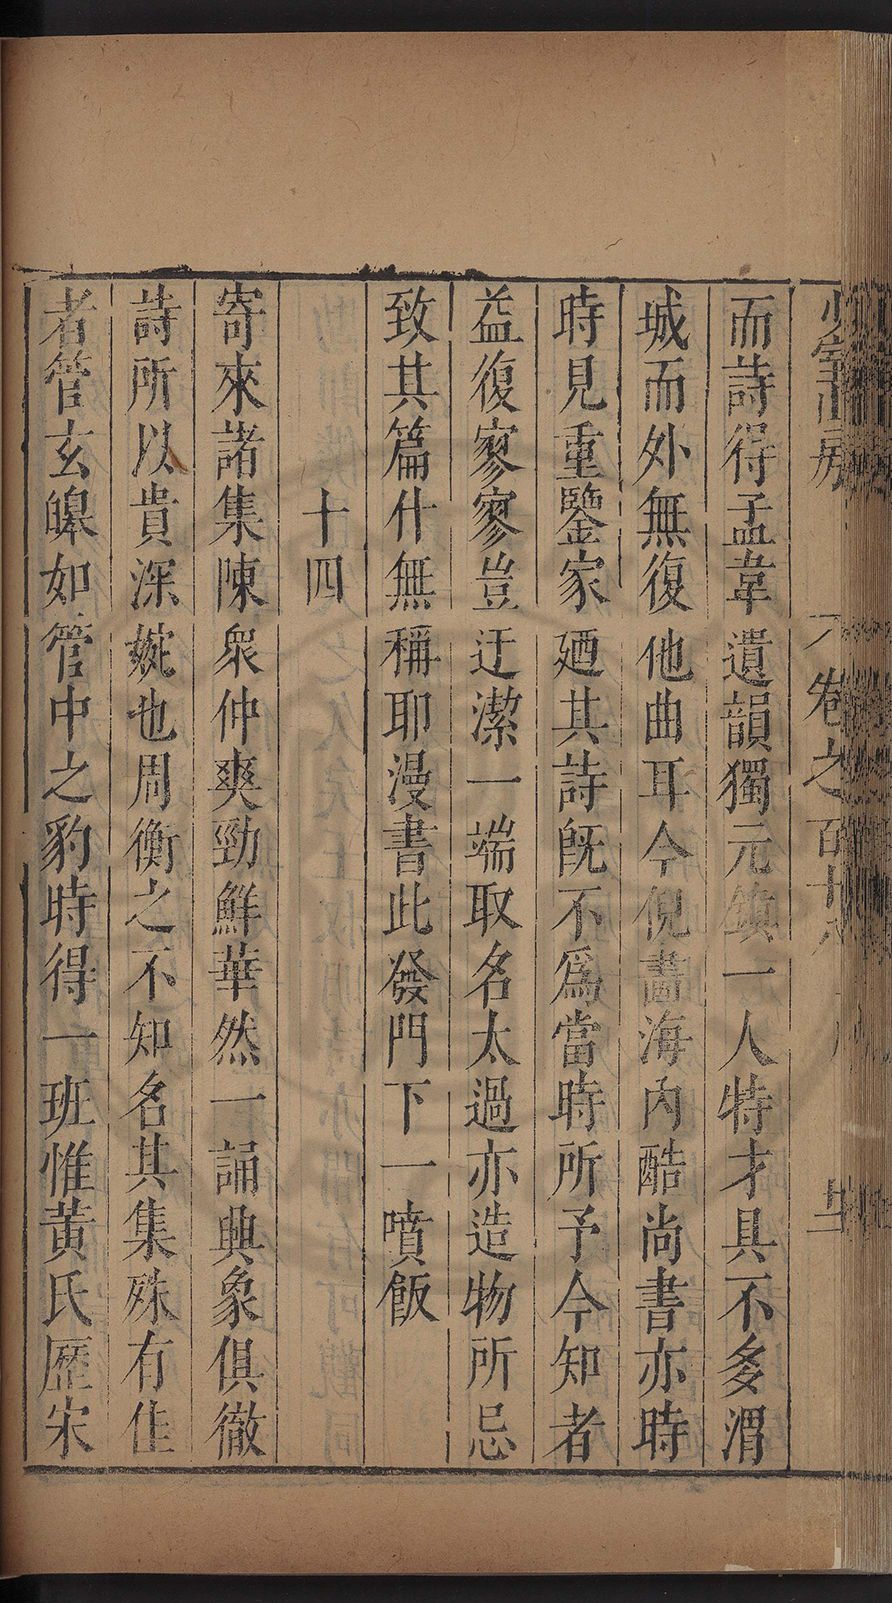 少室山房 卷之百十八
而詩得孟韋遺韻獨元鎮一人特才具不多渭
城而外無復他曲耳今倪畵海內酷尚書亦時
時見重鑒家廼其詩旣不爲當時所予今知者
益復寥寥豈迂潔一端取名太過亦造物所忌
致其篇什無稱耶漫書此發門下一噴飯
十四
寄來諸集陳衆仲爽勁鮮華然一誦興象俱徹
詩所以貴深婉也周衡之不知名其集殊有佳
者管玄皥如管中之豹時得一班惟黄氏歷宋